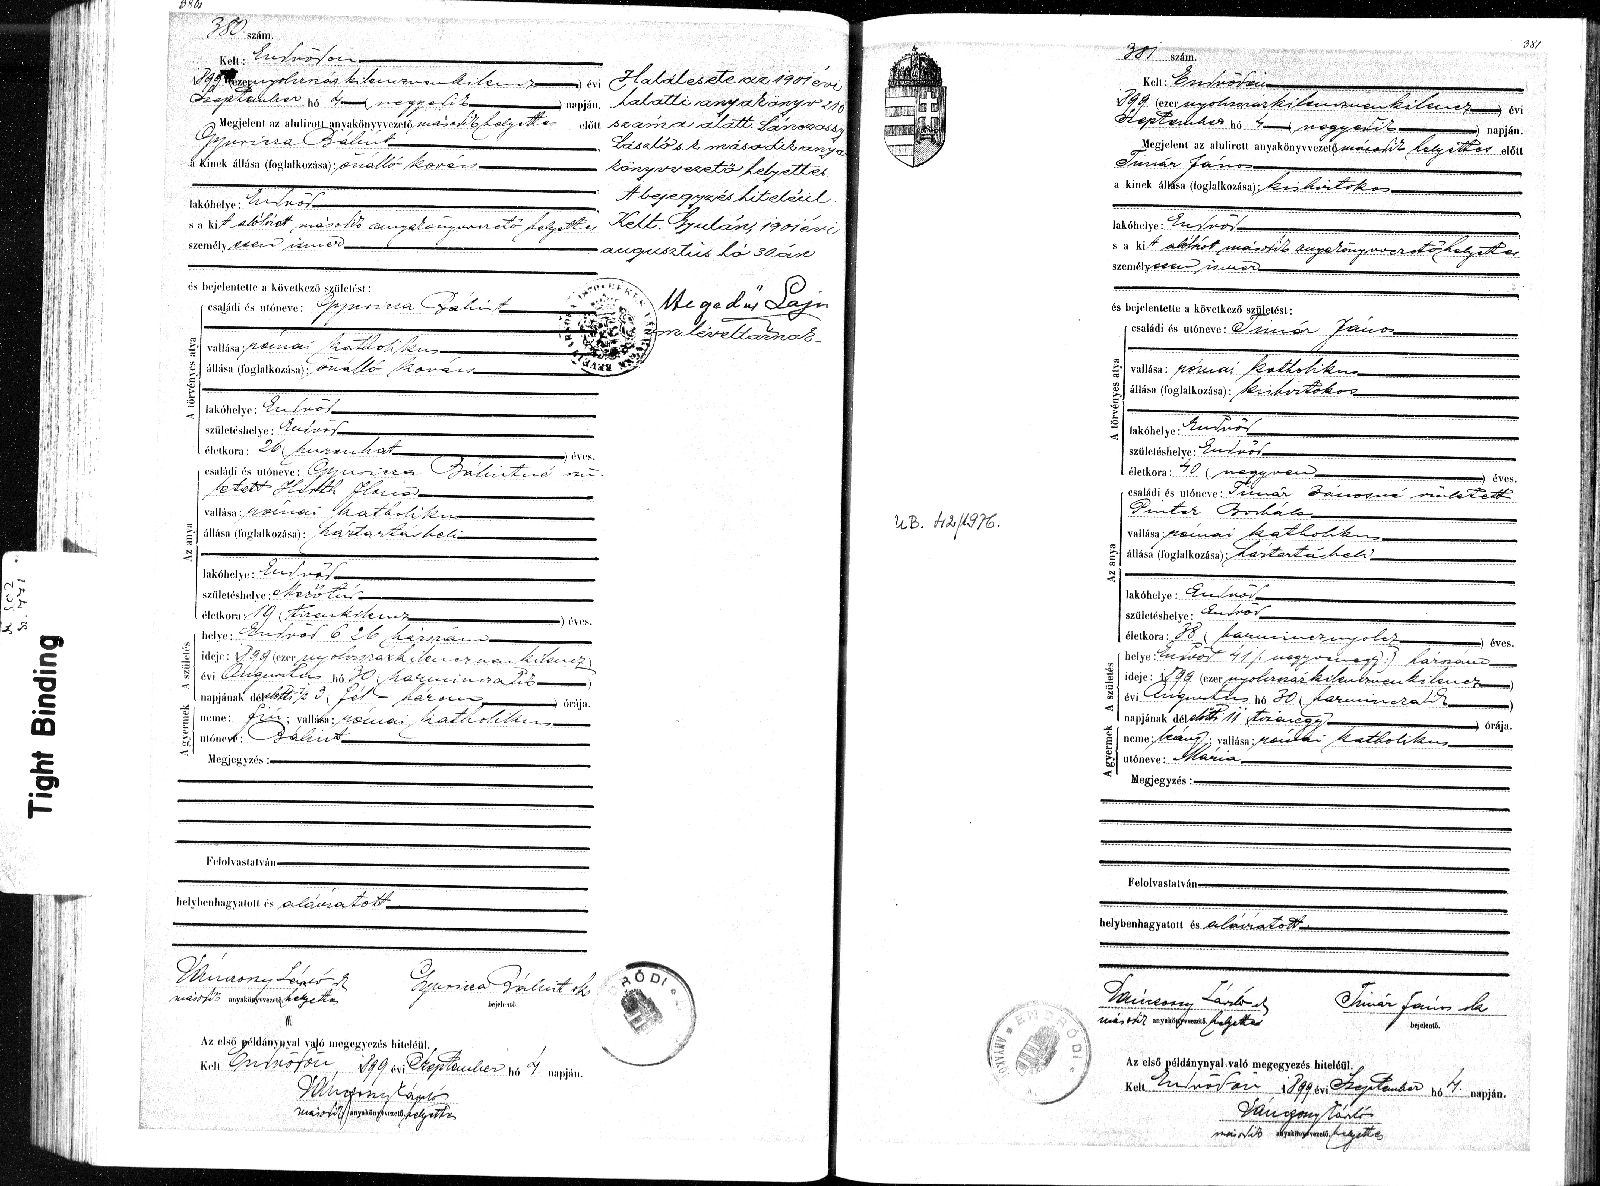 380 szám.
Kelt: Endrődön
1899 (ezernyolcszázkilenczvenkilencz) évi
Szeptember hó 4 (negyedik) napján.
Megjelent az alulirott anyakönyvvezető második helyettes előtt
Gyuricza Bálint
a kinek állása (foglalkozása): önálló kovács
lakóhelye: Endrőd
s a kit alólirott második anyakönyvvezető helyettes
személyesen ismer
és bejelentette a következő születést:
A törvényes atya
családi és utóneve: Gyuricza Bálint
vallása: római katholikus
állása (foglalkozása): önálló kovács
lakóhelye: Endrőd
születéshelye: Endrőd
életkora: 26 (huszonhat) éves.
Az anya
családi és utóneve: Gyuricza Bálintné szü-
letett Horth Ilona
vallása: római katholikus
állása (foglalkozása): háztartásbeli
lakóhelye: Endrőd
születéshelye: Mezőtúr
életkora: 19 (tizenkilencz) éves.
A gyermek A születés
helye: Endrőd 626 házszám
ideje: 1899 (ezer nyolcszázkilenczvenkilencz)
évi Augusztus hó 30 (harminczadik)
napjának délelőtti 1/2 3 (fél - három) órája.
neme: fiú; vallása: római katholikus
utóneve: Bálint
Megjegyzés:
Felolvastatván
helybenhagyatott és aláiratott
Vánczony László sk
második anyakönyvvezető helyettes
Gyuricza Bálint sk
bejelentő.
Az első példánynyal való megegyezés hiteléül.
Kelt Endrődön, 1899 évi Szeptember hó 4 napján.
Vánczony László
második anyakönyvvezető helyettes
Halálesete az 1901 évi
halotti anyakönyv 210
szám alatt. Vánczony
László s.k. második anya
könyvvezető helyettes
A bejegyzés hiteléül.
Kelt. Gyulán, 1901 évi
augusztus hó 30 án
Hegedüs Lajos
levéltárnok
Tight Binding
381
381 szám.
Kelt: Endrődön
1899 (ezer nyolcszázkilenczvenkilencz) évi
Szeptember hó 4 (negyedik) napján.
Megjelent az alulirott anyakönyvvezető második helyettes előtt
Timár János
a kinek állása (foglalkozása): kisbirtokos
lakóhelye: Endrőd
s a kit alólirott második anyakönyvvezető helyettes
személyesen ismer
és bejelentette a következő születést:
A törvényes atya
családi és utóneve: Timár János
vallása: római katholikus
állása (foglalkozása): kisbirtokos
lakóhelye: Endrőd
születéshelye: Endrőd
életkora: 40 (negyven) éves.
Az anya
családi és utóneve: Timár Jánosné született
Pinter Borbála
vallása: római katholikus
állása (foglalkozása): háztartásbeli
lakóhelye: Endrőd
születéshelye: Endrőd
életkora: 38 (harmincznyolcz) éves.
A gyermek A születés
helye: Endrőd 41 (negyvenegy) házszám
ideje: 1899 (ezer nyolcszázkilenczvenkilencz)
évi Augusztus hó 30 (harminczadik)
napjának délelőtti 11 tizenegy órája.
neme: leány; vallása: római katholikus
utóneve: Mária
Megjegyzés:
Felolvastatván
helybenhagyatott és aláiratott
Vánczony László sk
második anyakönyvvezető helyettes
Timár János sk
bejelentő.
Az első példánynyal való megegyezés hiteléül.
Kelt Endrődön 1899 évi Szeptember hó 4. napján.
Vánczony László
második anyakönyvvezető helyettes
UB. 42/1976.